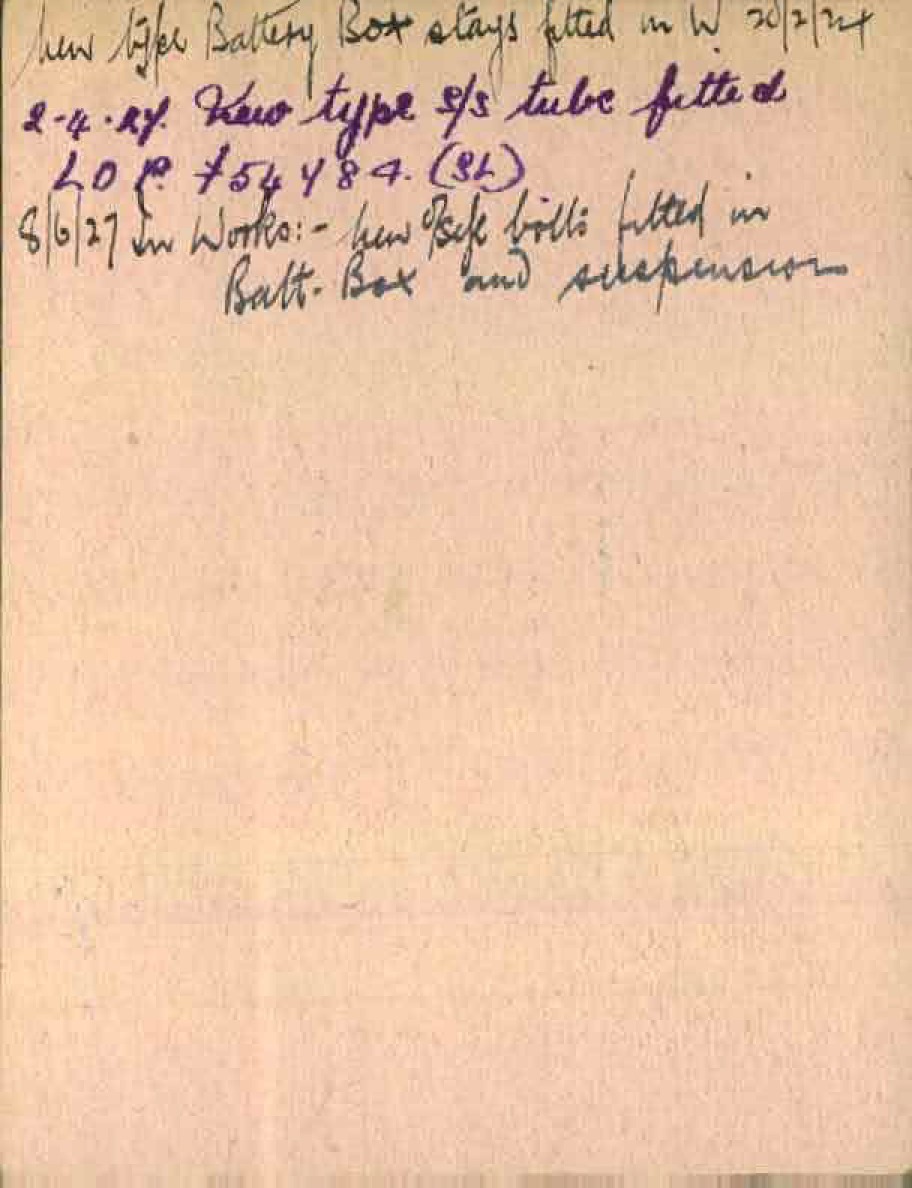 new type Battery Box stays fitted in W. 20/2/24
2-4-27. New type s/s tube fitted
L O P. 754484. (SL)
8/6/27 In Works:- New bolts fitted in
Batt. Box and suspension